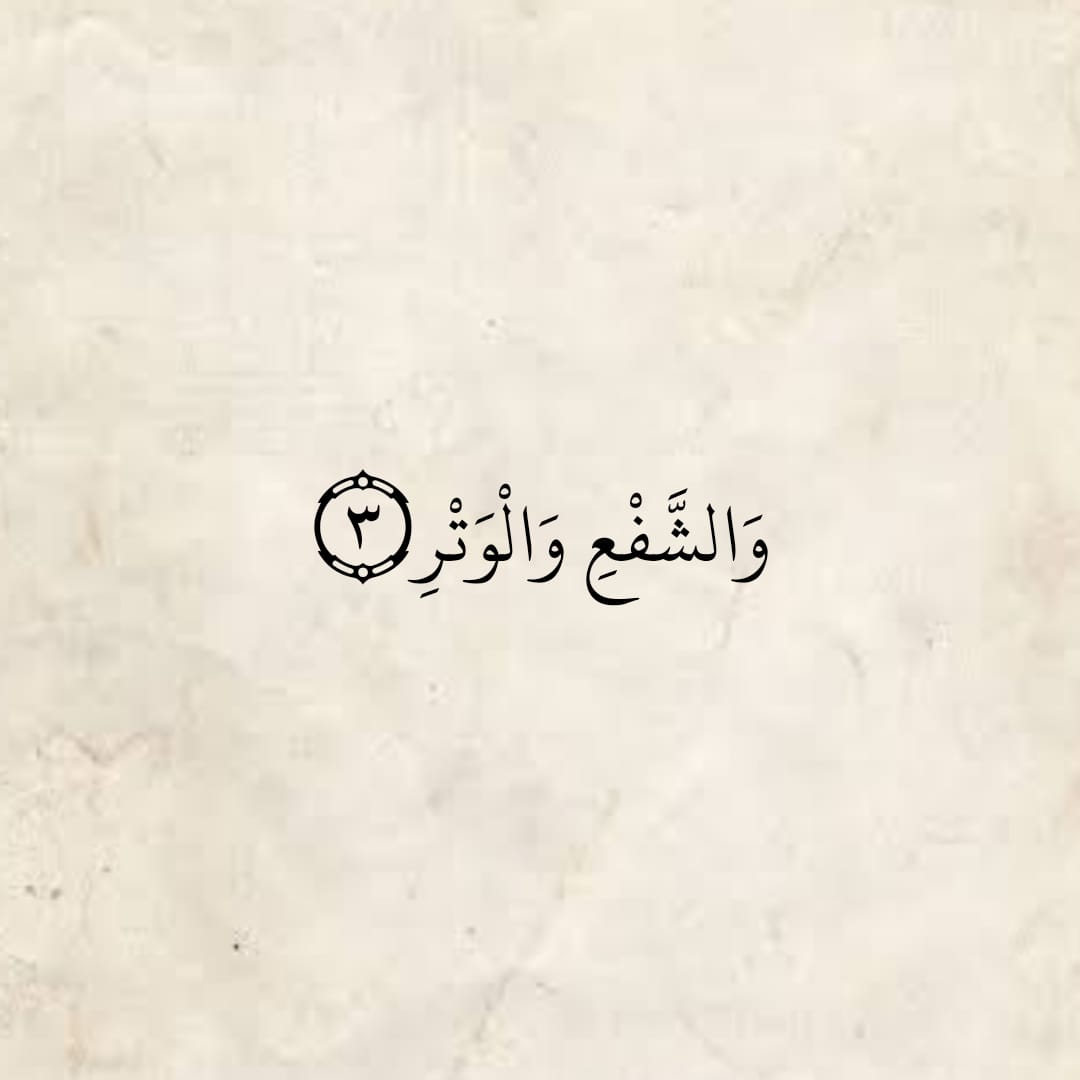 وَالشَّفْعِ وَالْوَتْرِ ٣